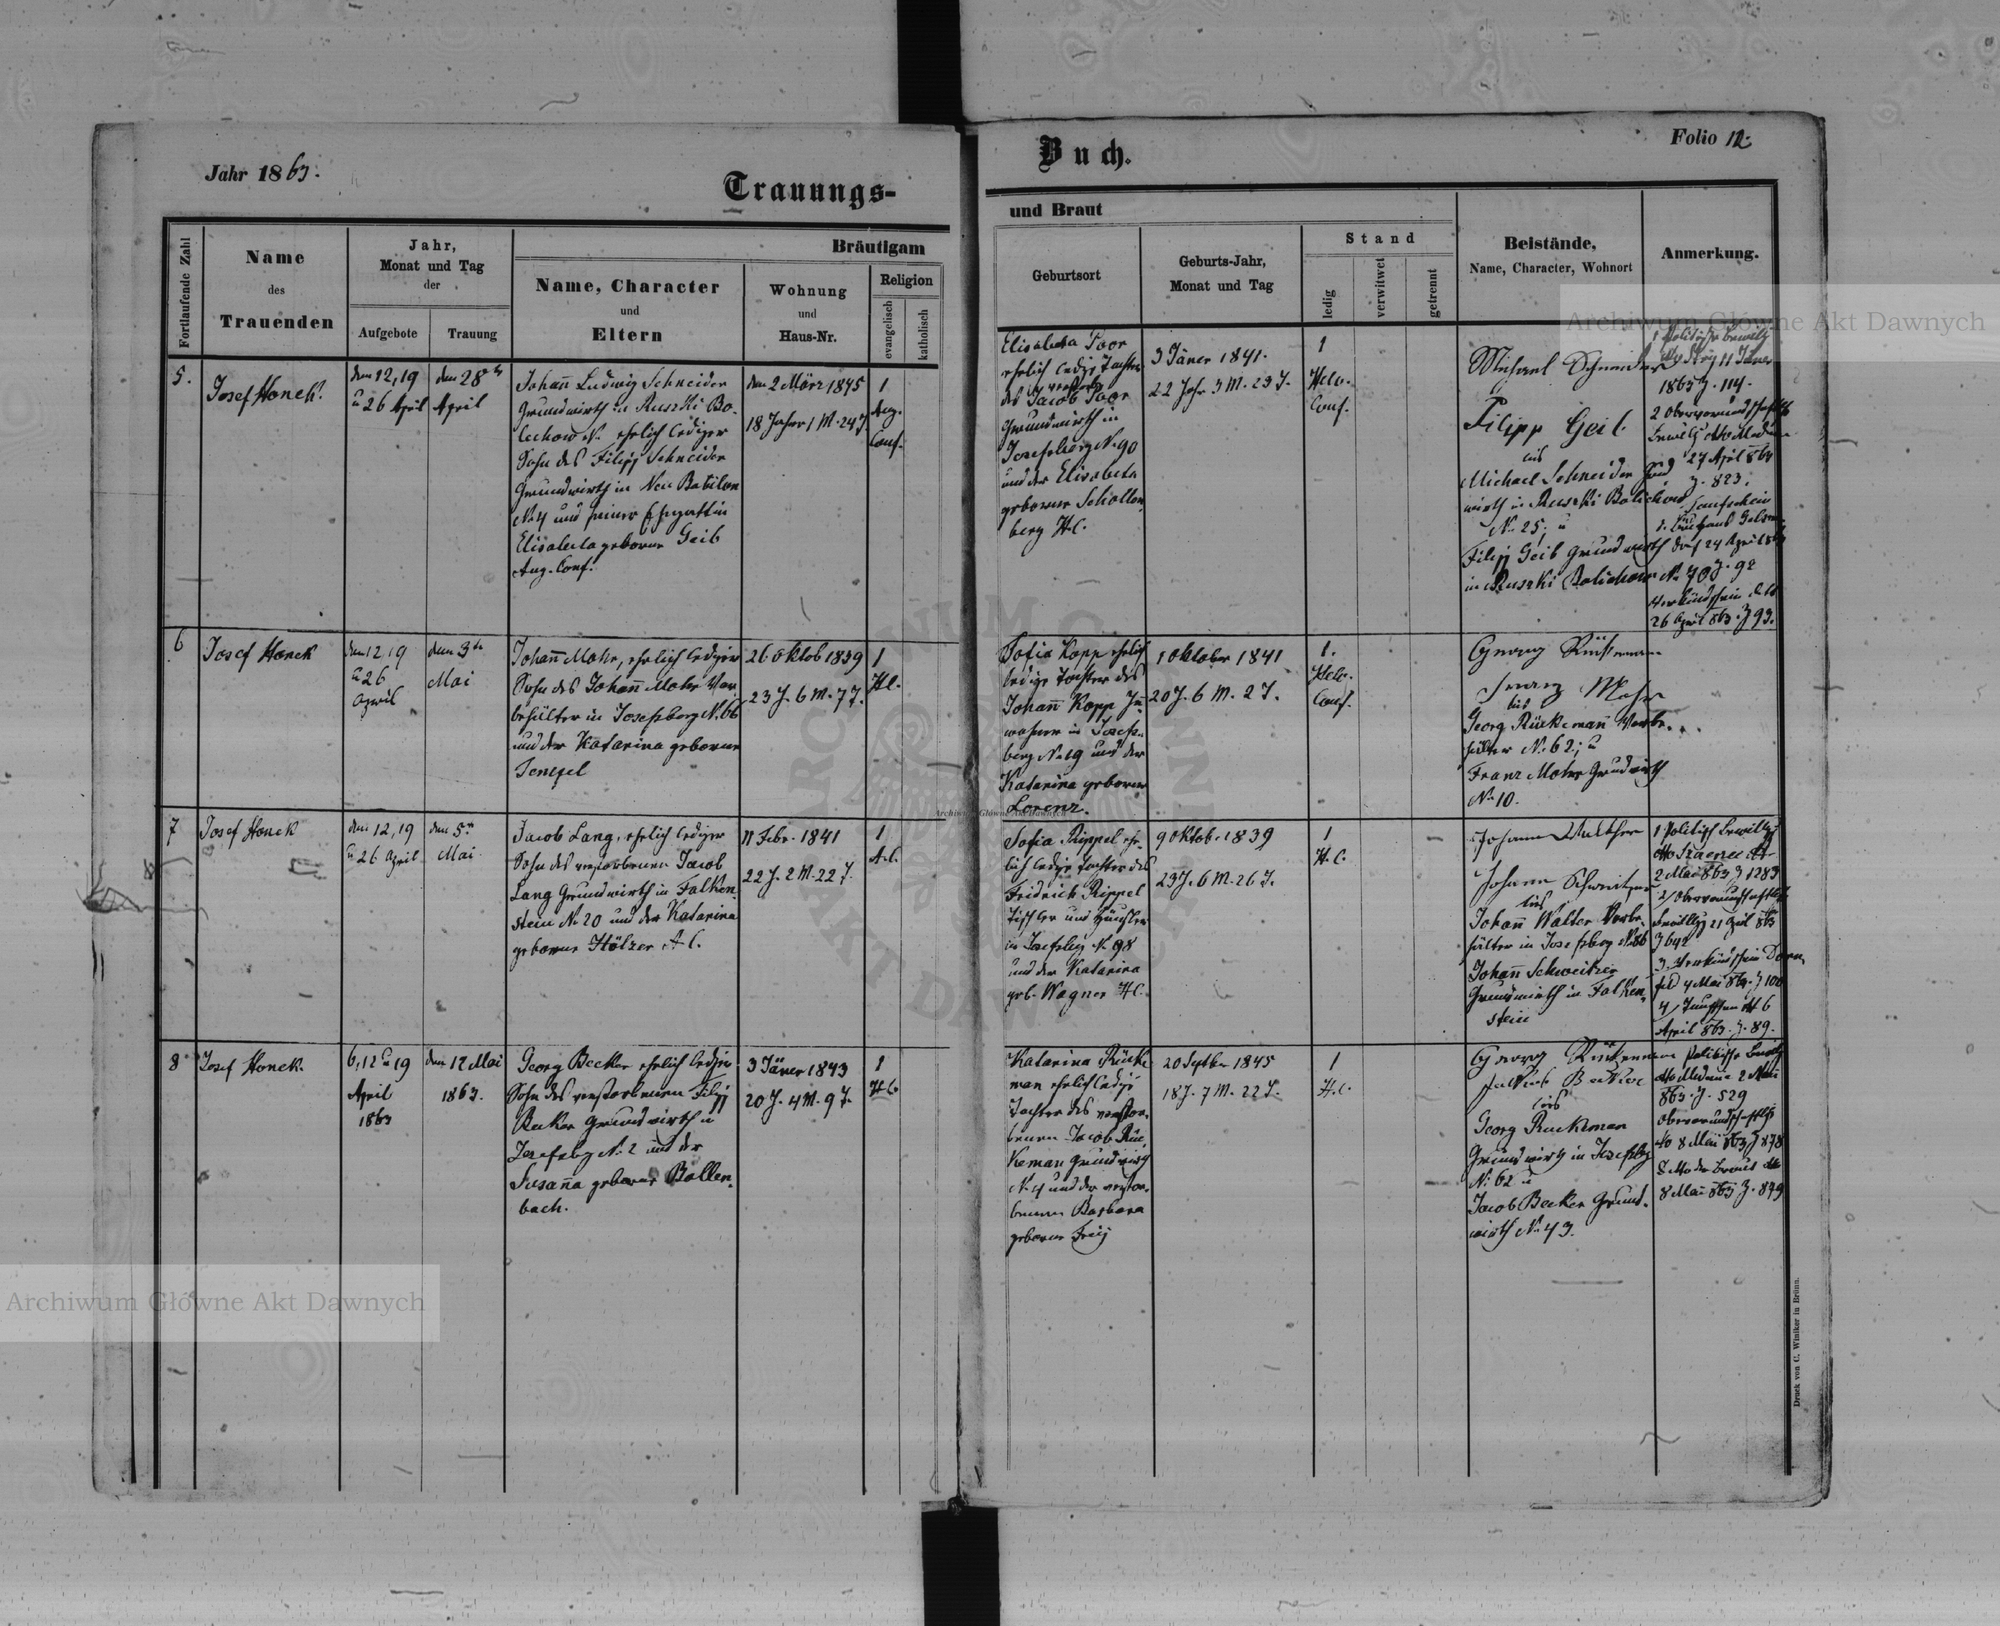 Jahr 1863.
Trauungs-
Buch.
Folio 12.
Fortlaufende Zahl
Name
des
Trauenden
Jahr,
Monat und Tag
der
Aufgebote
Trauung
Bräutigam
Name, Character
und
Eltern
Wohnung
und
Haus-Nr.
Religion
evangelisch
katholisch
und Braut
Geburtsort
Geburts-Jahr,
Monat und Tag
Stand
ledig
verwitwet
getrennt
Beistände,
Name, Character, Wohnort
Anmerkung.
5.
Josef Honek.
den 12, 19
u 26 April
den 28
April
Johañ Ludwig Schneider
Grundwirth in Ruszki Bo-
lechow N. ehrlich lediger
Sohn des Filipp Schneider
Grundwirth in Neu Babilon
N. 4 und seiner Ehegattin
Elisabeta geborne Geib
Aug. Conf.
den 2 März 1845
18 Jahre 1 M. 24 T.
1
Aug.
Conf.
Elisabeta Poor
ehrlich ledige Tochter
des Jacob Poor
Grundwirth in
Josefsberg N. 90
und der Elisabeta
geborne Schollen-
berg H.C.
3 Jäner 1841.
22 Jahr 3 M. 23 T.
1
Helv.
Conf.
Michael Schneider
Filipp Geib
als
Michael Schneider Grund
wirth in Ruszki Bolichow
N. 25, u
Filipp Geib Grundwirth
in Ruszki Bolichow
1 Politische Bewillg
Stryj 11 Jäner
1863 Z. 114.
27 April 863
Z. 823.
24 April 863
N. 70 Z. 92
26 April 863. Z 93.
6
Josef Honek
den 12, 19
u 26
April
den 3
Mai
Johañ Mohr, ehrlich lediger
Sohn des Johañ Mohr Vor-
behälter in Josefsberg N. 66
und der Katarina geborne
26 Oktob 1839
23 J. 6 M. 7 T.
1
H.C.
Sofia Kopp ehrlich
ledige Tochter des
Johañ Kopp Iñ-
wohner in Josefs-
berg N. 19 und der
Katarina geborne
Lorenz.
1 Oktober 1841
20 J. 6 M. 2 T.
1.
Helv.
Conf.
Georg Rükemann
Franz Mohr
als
Georg Rückemañ Vorbe-
hälter N. 62, u
Franz Mohr Grundwirth
N. 10.
7
Josef Honek
den 12, 19
u 26 April
den 5
Mai
Jacob Lang, ehrlich lediger
Sohn des verstorbenen Jacob
Lang Grundwirth in Falken-
stein N. 20 und der Katarina
geborne Hölzer A.C.
11 Febr. 1841
22 J. 2 M. 22 T.
1
A.C.
Sofia Rippel ehr-
lich ledige Tochter des
Fridrich Rippel
Tischler und Häusler
in Josefsbg N. 98
und der Katarina
geb. Wagner H.C.
9 Oktob. 1839
23 J. 6 M. 26 T.
1
H.C.
Johann Walther
Johann Schweitzer
als
Johañ Walter Vorbe-
hälter in Josefsberg N. 86
Johañ Schweitzer
Grundwirth in Falken-
stein
1 Politisch Bewillg
2 Mai 863 Z 1283
21 April 863
Z 642
4 Mai 863. Z 100
6
April 863. Z. 89.
8
Josef Honek.
6, 12 u 19
April
1863
den 12 Mai
1863.
Georg Becker ehrlich lediger
Sohn des verstorbenen Filipp
Becker Grundwirth in
Josefsbg N. 2 und der
Susaña geborne Bollen-
bach.
3 Jäner 1843
20 J. 4 M. 9 T.
1
H.C.
Katarina Rücke
man ehrlich ledige
Tochter des verstor-
benen Jacob Rüc-
keman Grundwirth
N. 4 und der verstor-
benen Barbara
geborne Frey
20 Septber 1845
18 J. 7 M. 22 T.
1
H.C.
Georg Rükemann
Jackob Becker
als
Georg Ruckeman
Grundwirth in Josefsbg
N. 62 u
Jacob Becker Grund-
wirth N. 43.
Politische Bewillg
2 Mai
863. Z. 529
8 Mai 863 Z 878
8 Mai 863 Z. 879
Druck von C. Winiker in Brünn.
Archiwum Główne Akt Dawnych
Archiwum Główne Akt Dawnych
Archiwum Główne Akt Dawnych
ARCHIWUM GŁÓWNE AKT DAWNYCH